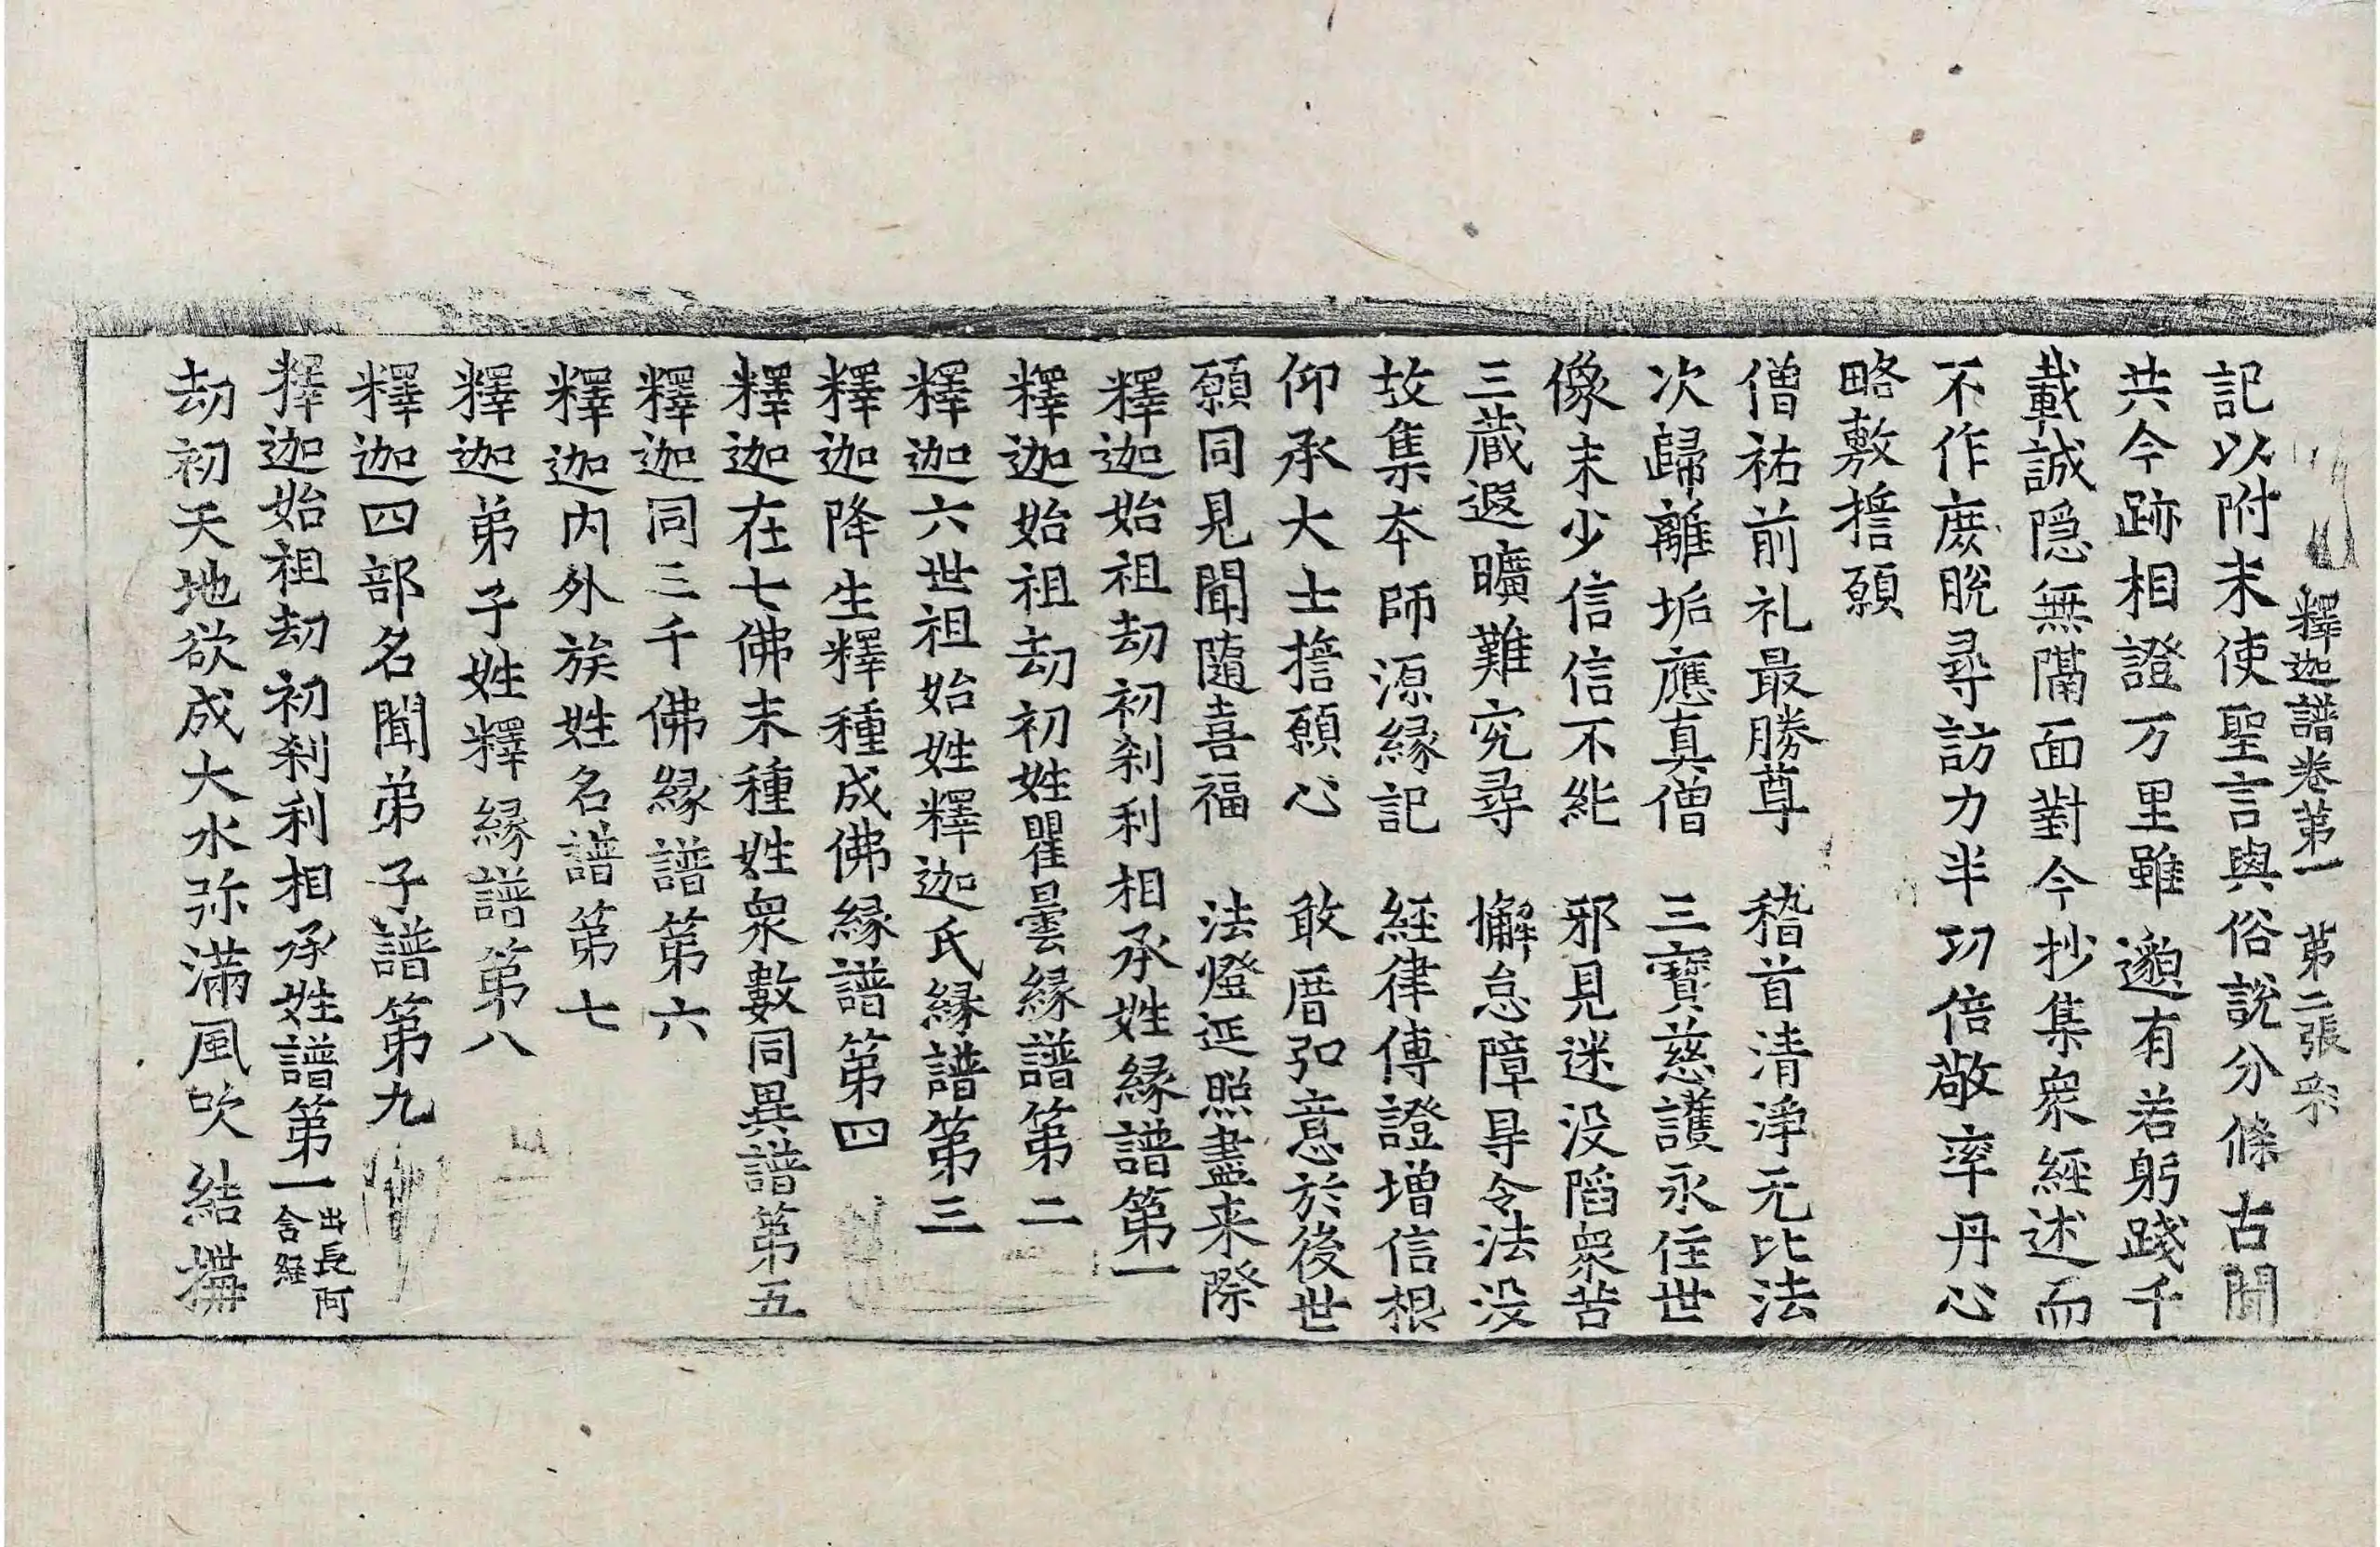 釋迦譜卷第一　第二張
記以附末使聖言與俗說分條古聞
共今跡相證万里雖邈有若躬踐千
載誠隠無隔面對今抄集衆經述而
不作庶脫尋訪力半功倍敬率丹心
略敷擔願
僧祐前礼最勝尊　稽首清淨无比法
次歸離垢應真僧　三寶慈護永住世
像末少信信不能　邪見迷没陷衆苦
三蔵遐曠難究尋　懈怠障㝵令法没
故集本師源縁記　經律傳證增信根
仰承大士擔願心　敢厝弘意於後世
願同見聞隨喜福　法燈延照盡来際
釋迦始祖劫初刹利相承姓縁譜第一
釋迦始祖劫初姓瞿曇縁譜第二
釋迦六世祖始姓釋迦氏縁譜第三
釋迦降生釋種成佛縁譜第四
釋迦在七佛末種姓衆數同異譜第五
釋迦同三千佛縁譜第六
釋迦内外族姓名譜第七
釋迦弟子姓釋縁譜第八
釋迦四部名聞弟子譜第九
釋迦始祖劫初刹利相承姓譜第一出長阿含經
劫初天地欲成大水弥滿風吹結搆